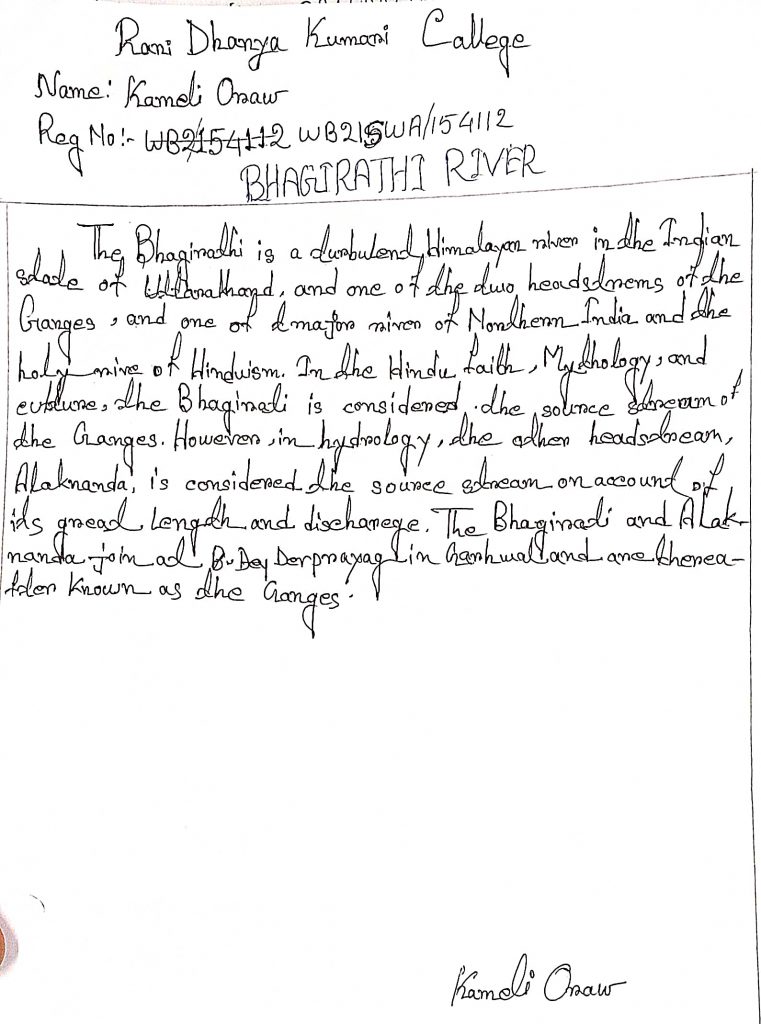 Rani Dhanya Kumari College
Name: Kameli Oraw
Reg No:- WB2154112 WB215WA/154112
BHAGIRATHI RIVER
The Bhagirathi is a turbulent Himalayan river in the Indian
state of Uttarakhand, and one of the two headstrems of the
Ganges, and one of t major river of Northern India and the
holy rive of Hinduism. In the Hindu faith, Mythology, and
culture, the Bhagirati is considered the source stream of
the Ganges. However, in hydrology, the other headstream,
Alaknanda, is considered the source stream on account of
its great length and discharege. The Bhagirati and Alak-
nanda join at Dev Derprayag in Garhwal and are therea-
fter known as the Ganges.
Kameli Oraw